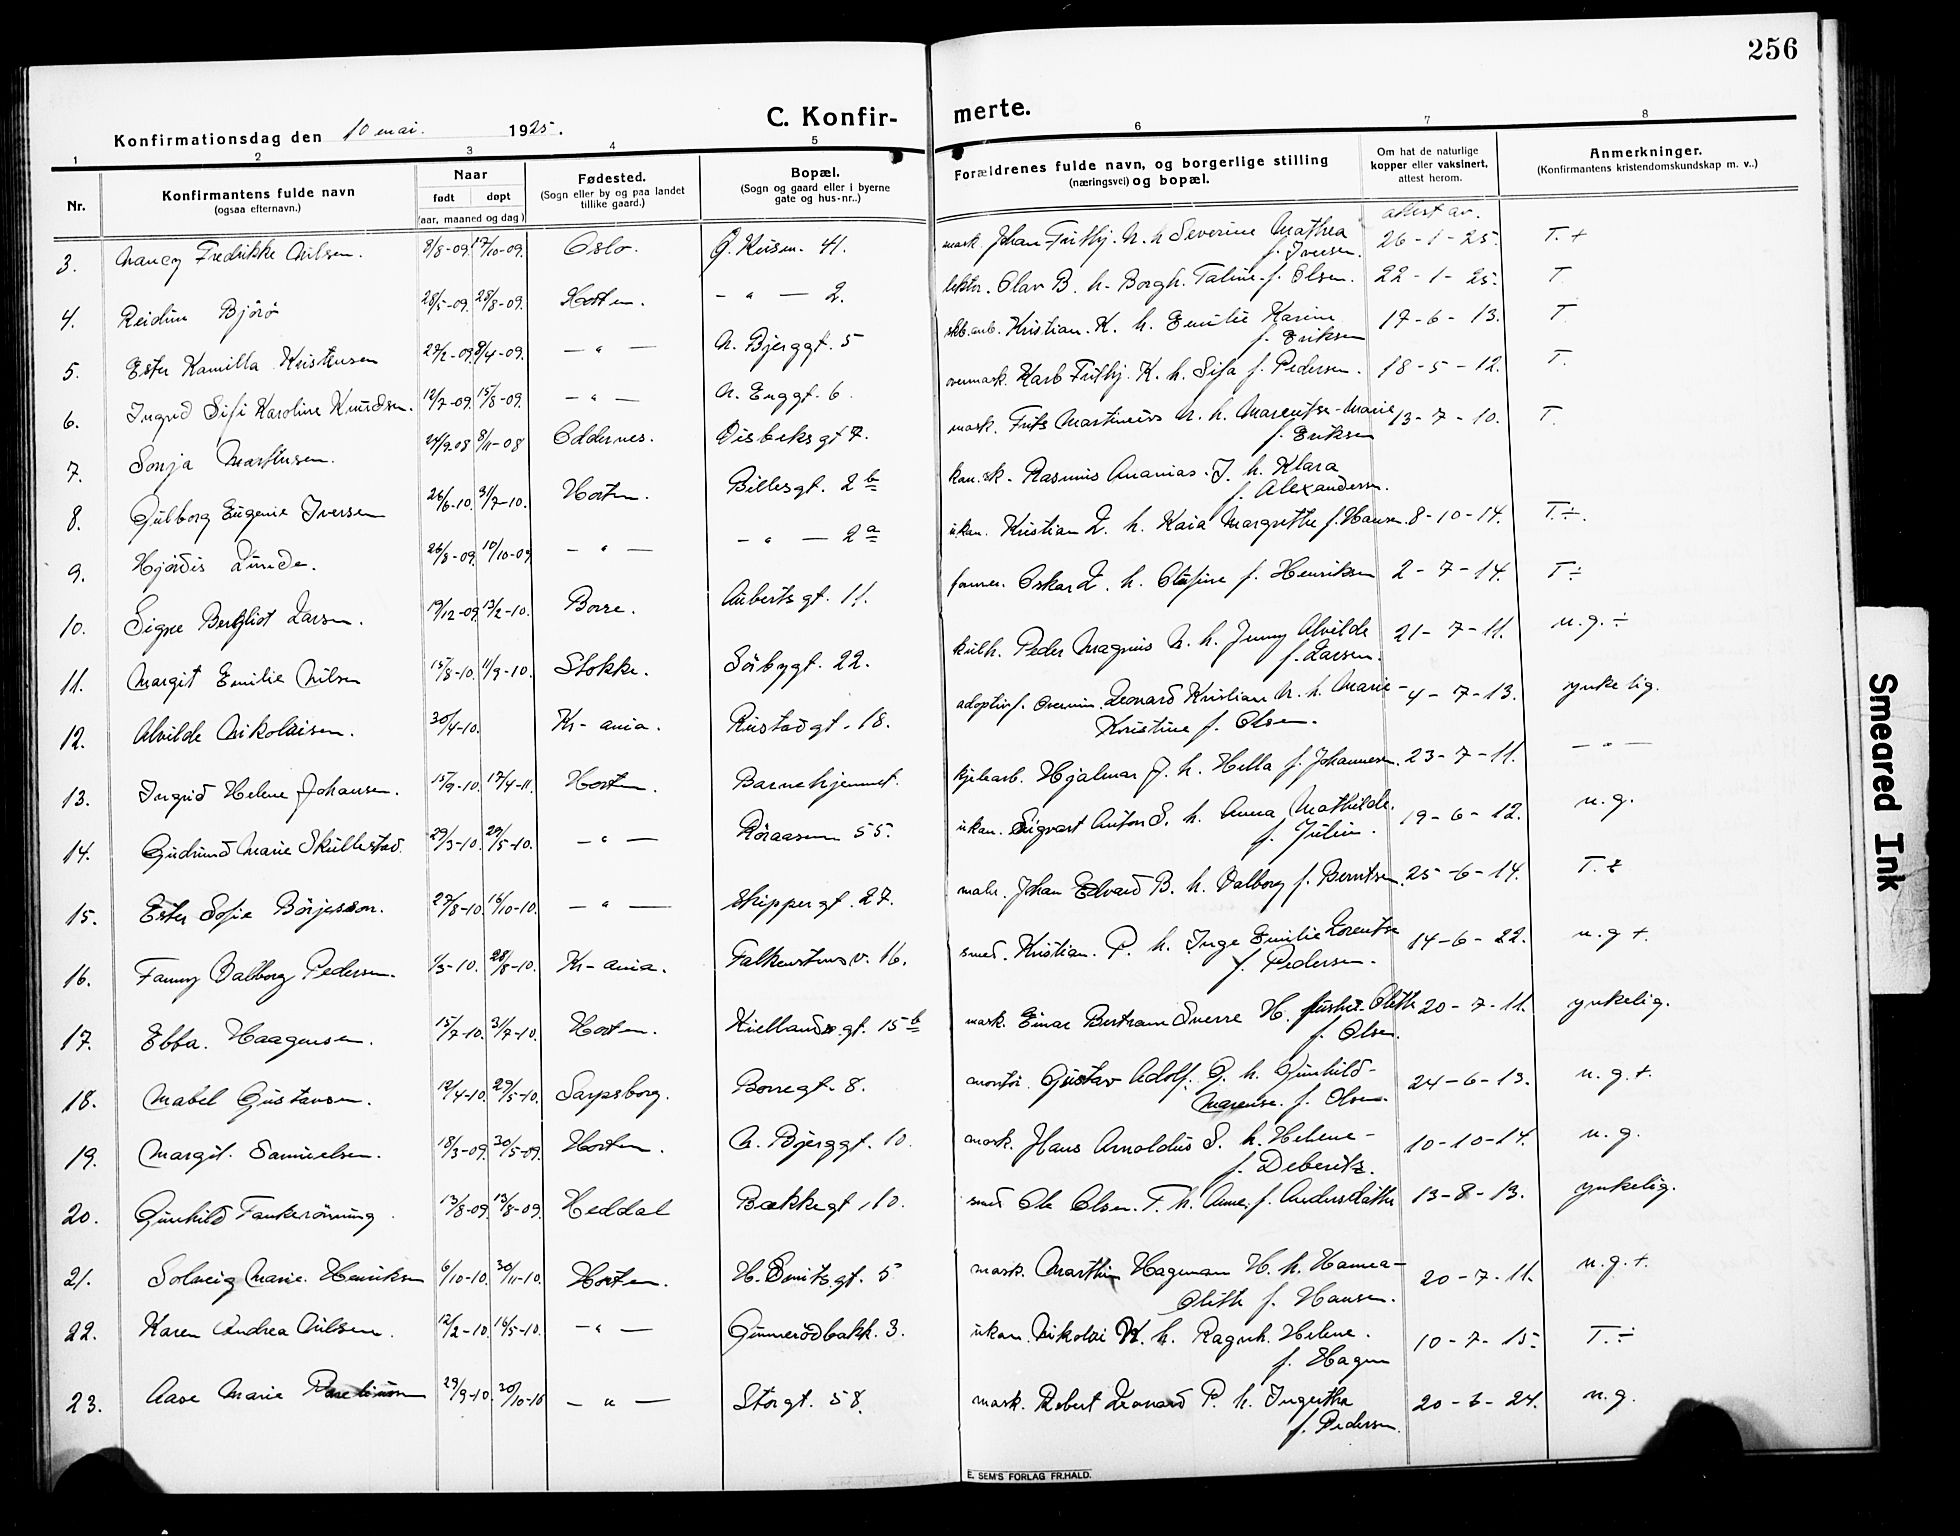 256
C. Konfirmerte.
Konfirmationsdag den 10 mai. 1925.
1 2 3 4 5 6 7 8
Nr. Konfirmantens fulde navn (ogsaa efternavn.)
Naar født døpt (aar, maaned og dag)
Fødested. (Sogn eller by og paa landet tillike gaard.)
Bopæl. (Sogn og gaard eller i byerne gate og hus-nr..)
Forældrenes fulde navn, og borgerlige stilling (næringsvei) og bopæl.
Om hat de naturlige kopper eller vaksinert, attest herom.
Anmerkninger. (Konfirmantens kristendomskundskap m. v..)
attest av.
3. Nancy Fredrikke Nilsen. 8/8-09 17/10-09. Oslo. 41. mask. Johan Frithj. N. h. Severine Mathea f. Iversen. 26-1-25. T. +
4. Reidun Bjørö 28/5-09. 28/8-09. Horten. - " - 2. lektor. Olav B. h. Borgh. Taline f. Olsen. 22-1-25. T.
5. Ester Kamilla Kristensen 9/4-09. - " - N. Bjerggt. 5 skb. arb. Kristian. K. h. Emilie Karine f. Eriksen 17-6-13. T
6. Ingrid Sifi Karoline Knudsen. 12/7-09. 15/8-09. - " - N. Enggt. 6. overmask. Karl Frithj. K. h. Sifa f. Pedersen. 18-5-12. T.
7. Sonja Marthinsen. 24/9-08 8/11-08 Oddernes. Disbeksgt 7. mask. Frits Martinius M. h. Marentse-Marie f. Eriksen 13-7-10. T.
8. Gulborg Eugenie Iversen 26/6-10. 31/7-10. Horten. Billesgt. 2 b kan. sk. Rasmus Ananias. I. h. Klara f. Alexandersen.
9. Hjørdis Lunde. 26/8-09 10/10-09 - " - - " - 2 a ukan. Kristian L. h. Kaia Margrethe f. Hansen. 8-10-14. T. ÷.
10. Signe Bergliot Larsen. 19/12-09 13/2-10. Borre. Aubertsgt. 11. Oskar L. h. f. Henriksen 2-7-14. T ÷
11. Margit Emilie Nilsen 15/8-10. 11/9-10. Stokke. Sörbygt. 22. Peder Magnus N. h. Jenny Alvilde f. Larsen. 21-7-11. n. g. ÷
12. Alvilde Nikolaisen. 30/4-10. Kr-ania. Rustadgt. 18. adoptivf. Leonard Kristian N. h. Marie-Kristine f. Olsen. 4-7-13. ynkelig.
13. Ingrid Helene Johansen. 15/9-10. 17/4-11. Horten. Barnehjemmet. Hjalmar J. h. Hella f. Johannesen. 23-7-11. - " -
14. Gudrund Marie Skullestad. 29/3-10. 29/5-10. - " - Röraasen 55. ukan. Sigvart Anton S. h. Anna Mathilde. f. Julin. 19-6-12. n. g.
15. Ester Sofie Börjesson. 16/10-10. - " - Skippergt. 27. maler. Johan Edvard B. h. Valborg f. Berntsen. 25-6-14. T. ÷
16. Fanny Valborg Pedersen. 1/3-10. 28/8-10. Kr-ania. Falkenstensv. 16. smed. Kristian. P. h. Inge Emilie Lorentse f. Pedersen. 14-6-22. n. g +.
17. Ebba. Haagensen. 15/7-10. 31/7-10. Horten. Kiellandsgt. 15 b mask. Einar Bertram Sverre H. Olith f. Olsen. 20-7-11. ynkelig.
18. Mabel Gustavsen. 12/4-10. 29/5-10. Sarpsborg. Borregt. 8. montör. Gustav Adolf. G. h. Gunhild-Marense. f. Olsen. 24-6-13. n. g. +.
19. Margit. Samuelsen. 18/3-09. 30/5-09. Horten. N. Bjerggt. 10. mask. Hans Arnoldus S. h. Helene-f. Deberitz. 10-10-14. n. g.
20. Gunhild Tankerönning. 13/8-09. 13/8-09. Heddal Bækkegt. 10. smed Ole Olsen. T. h. Anne. f. 13-8-13. ynkelig.
21. Solveig Marie. Henriksen 6/10-10. 30/11-10. Horten. H. Smitsgt. 5 mask. Marthin Hagman H. h. Hanna-Olith f. Hansen. 20-7-11. n. g. +.
22. Karen Andrea Nilsen. 12/2-10. 16/5-10. - " - Gunnerödbakk. 3. ukan. Nikolai N. h. Ragnh. Helene. f. Hagen 10-7-15 T. ÷
23. Aase Marie 29/9-10. 30/10-10 - " - Storgt. 58. mask. Robert Leonard P. h. Ingertha f. Pedersen. 20-6-24. n. g.
E. SEM'S FORLAG FR.HALD.
Smeared Ink